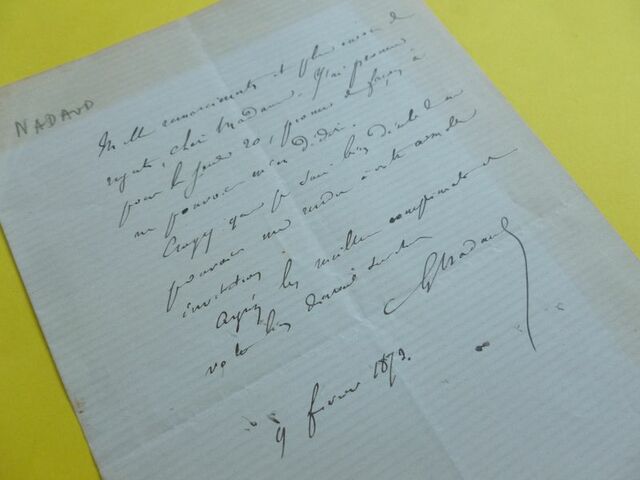 NADAUD
Mille remerciements et plus encore de
regrets, chère Madame. J'ai promis
pour le jeudi 20, promis de façon à
ne pouvoir m'en dédire.
Croyez que je suis bien désolé de ne
pouvoir me rendre à votre aimable
invitation
Agréez les meilleurs compliments de
votre bien dévoué serviteur
G Nadaud
9 février 1873.